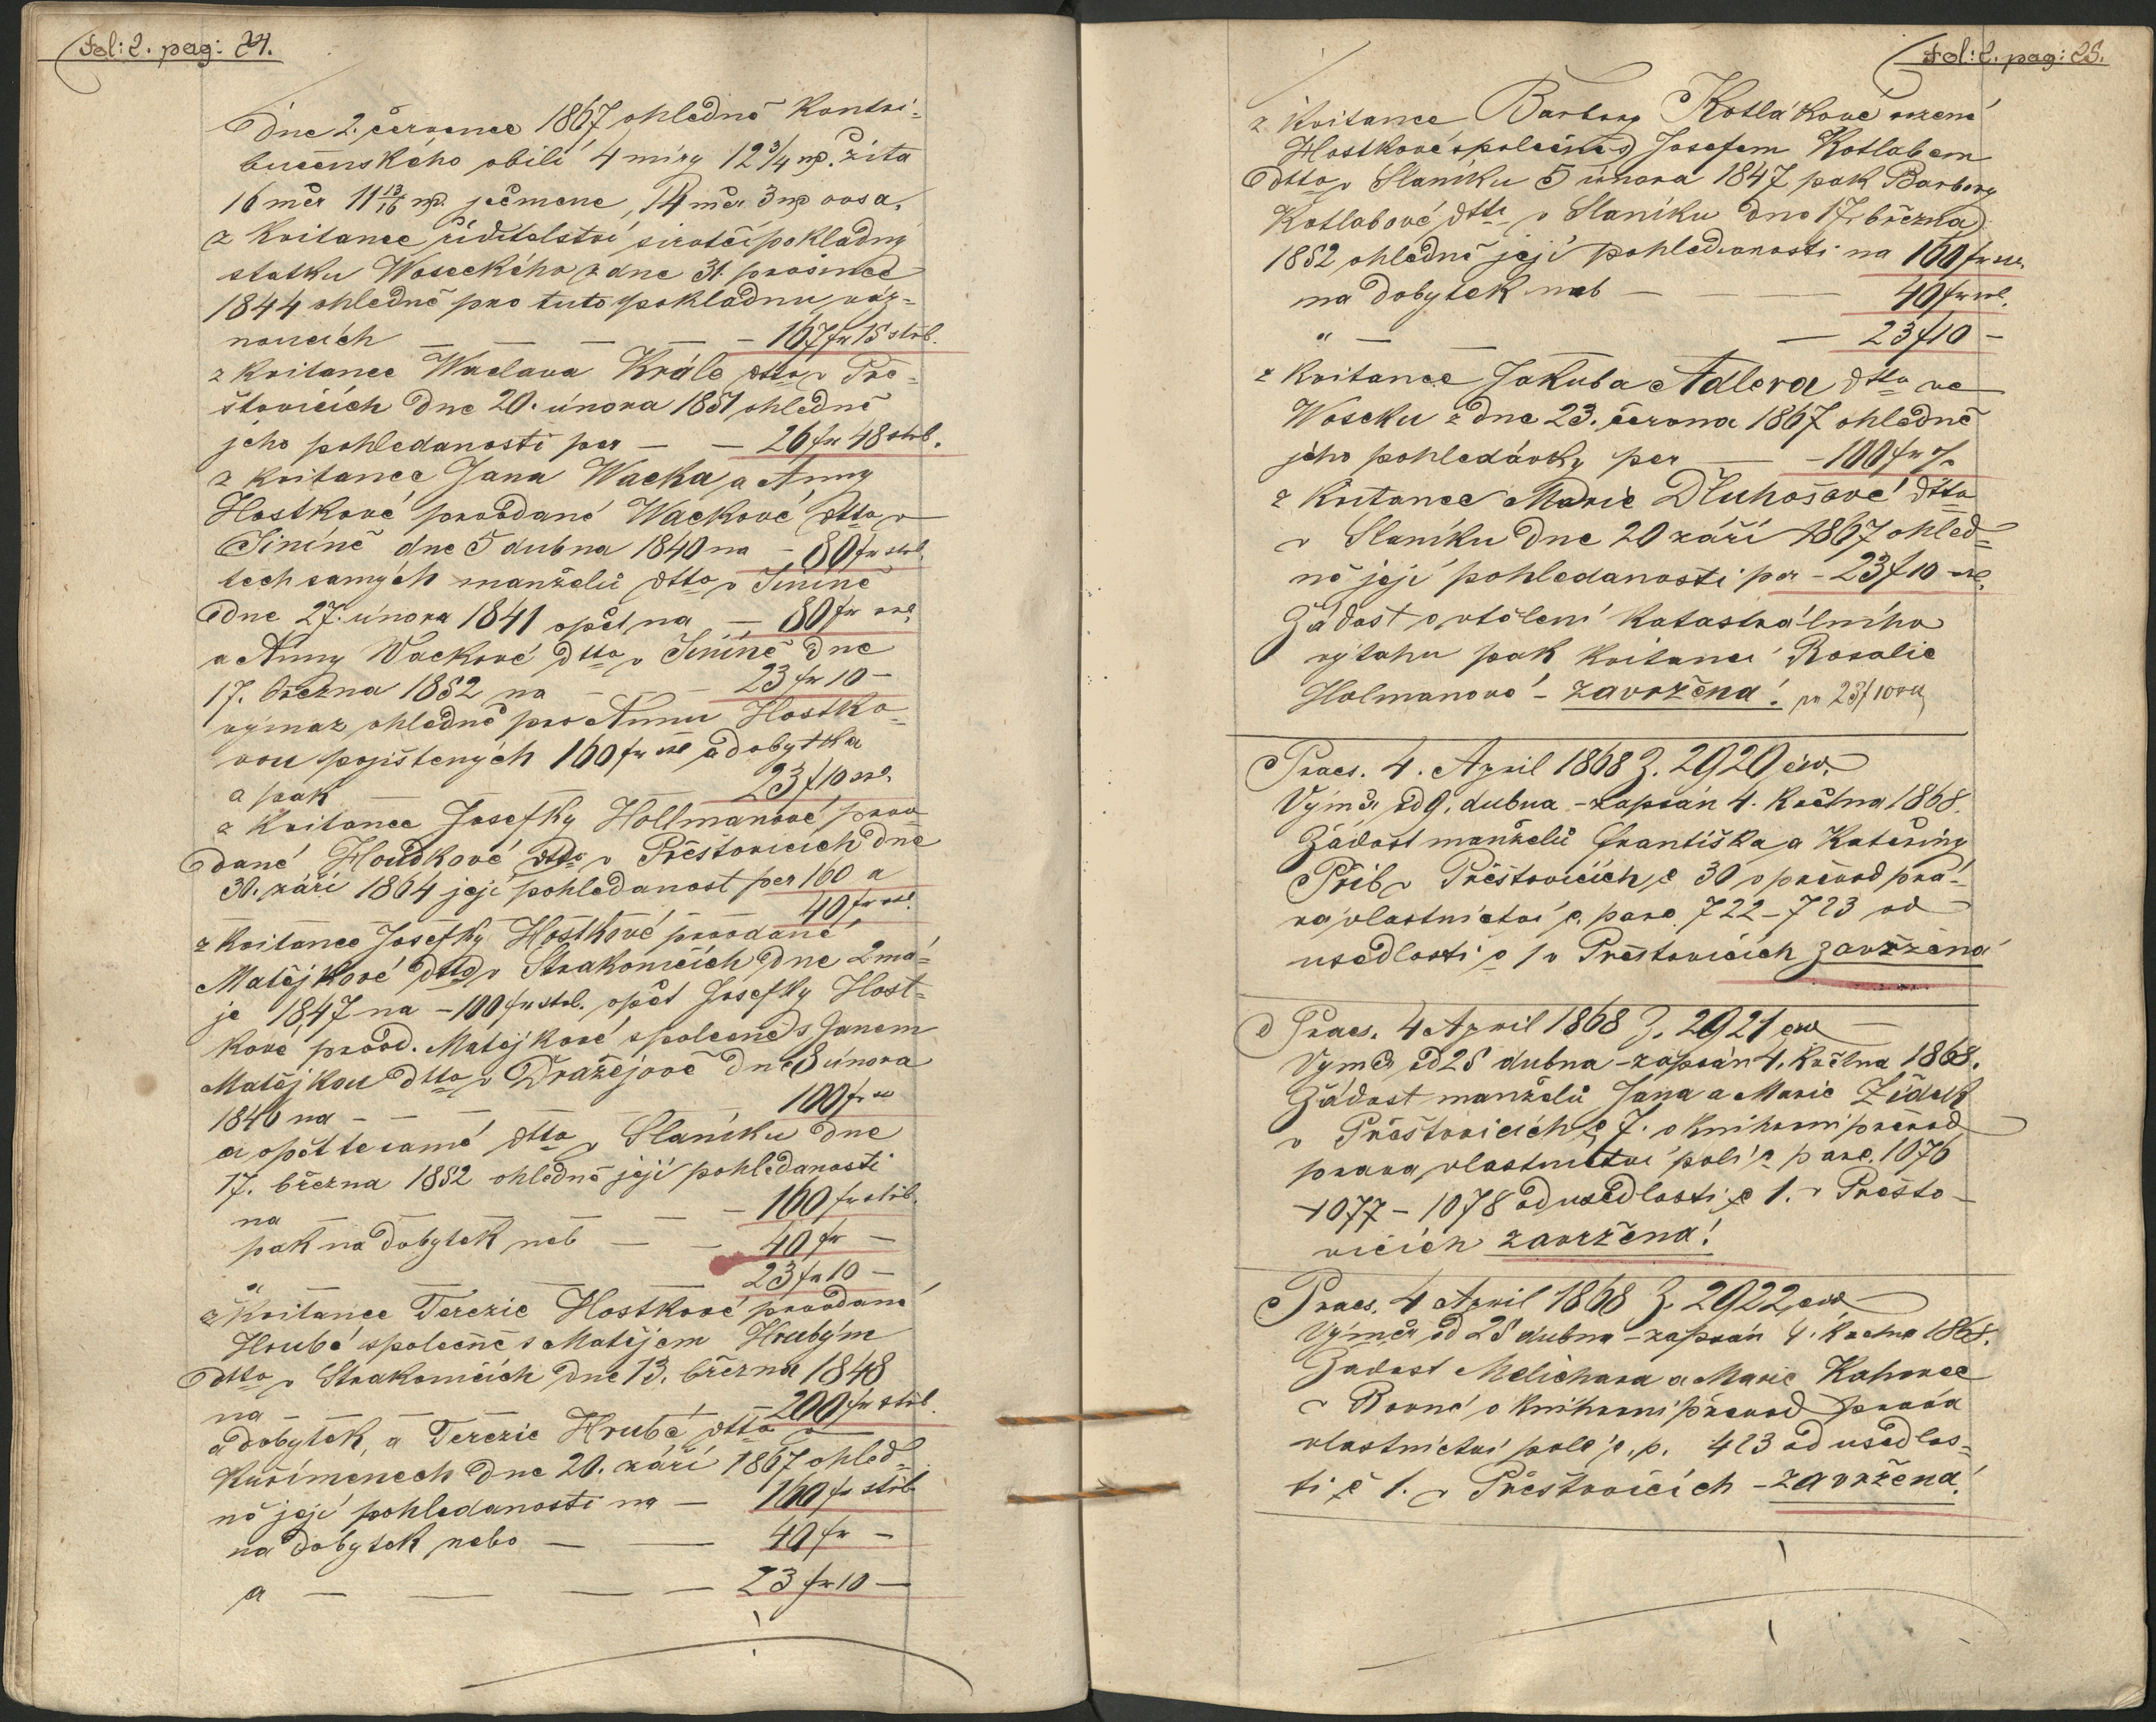 fol: 2. pag: 24.
Dne 2. července 1867 ohledně kontri-
bučenského obilí 4 míry 12 3/4 mp. žita
16 měr 11 13/16 mp. ječmene, 14 měr 3 mp ovsa,
z kvitance řiditelství sirotčí pokladny
statku Woseckého z dne 31. prosince
1844 ohledně pro tuto pokladnu váz-
noucích — — — — 167 fr 15 stříb.
z kvitance Waclava Krále dtto v Pře-
šťovicích dne 20. února 1851 ohledně
jeho pohledanosti per — — 26 fr 48 stříb.
z kvitance Jana Wacka a Anny
Hostkové provdané Wackové dtto v
Jinině dne 5 dubna 1840 na — 80 fr stříb.
těch samých manželů dtto v Jinině
dne 27. února 1841 opět na — 80 fr
a Anny Wackové dtto v Jinině dne
17. března 1852 na — — 23 fr 10 —
výmaz ohledně pro Annu Hostko-
vou pojištených 160 fr a dobytka
a pak — — — 23 f 10
z kvitance Josefky Hollmanové prov-
dané Houdkové dtto v Přešťovicích dne
30. září 1864 její pohledanost per 160 a
40 fr
z kvitance Josefky Hostkové provdané
Matějkové dtto v Strakonicích dne 2 má-
je 1847 na — 100 fr stříb. opět Josefky Host-
kové provd. Matějkové společně s Janem
Matějkou dtto v Dražejově dne 8 února
1840 na — — — 100 fr
a opět te samé dtto v Slaníku dne
17. března 1852 ohledně její pohledanosti
na — — — — 160 fr stříb.
pak na dobytek neb — — 40 fr —
" — — — 23 fr 10 —
z kvitance Terezie Hostkové provdané
Hrubé společně s Matějem Hrubým
dtto v Strakonicích dne 13. března 1848
na — — — — 200 fr stříb.
a dobytek, a Terezie Hrubé dtto v
Kuřimenech dne 20. září 1867 ohled-
ně její pohledanosti na — 160 fr stříb.
na dobytek nebo — — 40 fr —
a — — — — 23 fr 10 —
fol: 2. pag: 25.
z kvitance Barbory Kotlákové rozené
Hostkové společně s Josefem Kotlabem
dtto v Slaníku 5 února 1847 pak Barbory
Kotlabové dtto v Slaníku dne 17. března
1852 ohledně její pohledanosti na 160 fr
na dobytek neb — — — 40 fr
" — — — 23 f 10 —
z kvitance Jakuba Adlera dtto ve
Woseku z dne 23. června 1867 ohledně
jeho pohledávky per — — 100 fr
z kvitance Marie Dluhošové dtto
v Slaníku dne 20 září 1867 ohled-
ně její pohledanosti per — 23 f 10
Žádost o vtělení katastrálního
výtahu pak kvitance Rosalie
Holmanové — zavržena! pr 23 f 10
Praes. 4. April 1868 Z. 2920 civ.
Výměr od 9. dubna — zapsán 4. května 1868.
Žádost manželů Františka a Kateřiny
Přib v Přešťovicích č 30 o převod prá-
va vlastnictví č. parc. 722—723 od
usedlosti č 1 v Přešťovicích zavržena
Praes. 4 April 1868 Z. 2921 civ
Výměr od 25 dubna — zapsán 4. května 1868.
Žádost manželů Jana a Marie Židek
v Přešťovicích č 7. o knihovní převod
prava vlastnictví polí č parc. 1076
—1077—1078 od usedlosti č 1. v Přešťo-
vicích zavržena!
Praes. 4 April 1868 Z. 2922 civ
Výměr od 25 dubna — zapsán 4. května 1868.
Žadost Melichara a Marie Kahovec
v Rovné o knihovní převod práva
vlastnictví pole č. p. 423 od usedlos-
ti č 1. v Přešťovicích — zavržena!